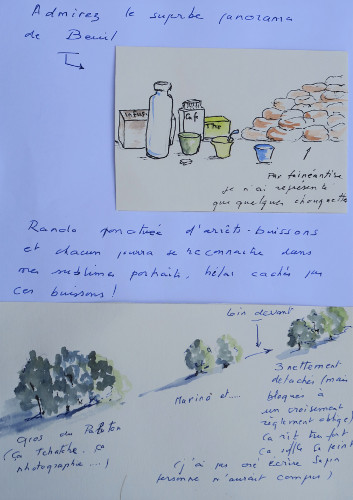 Admirez le superbe panorama
de Beuil
Café
Thé
Par fainéantise
je n'ai représenté
que quelques chouquettes
Rando ponctuée d'arrêts-buissons
et chacun pourra se reconnaître dans
mes sublimes portraits, hélas cachés par
ces buissons !
loin devant
Gros du Peloton
(ça Tchatche, ça
photographie ....)
Marino et....
3 nettement
détachés (mais
bloqués à
un croisement
règlement oblige)
ça rit très fort
ça
(j'ai pas osé écrire Sapin
personne n'aurait compris)